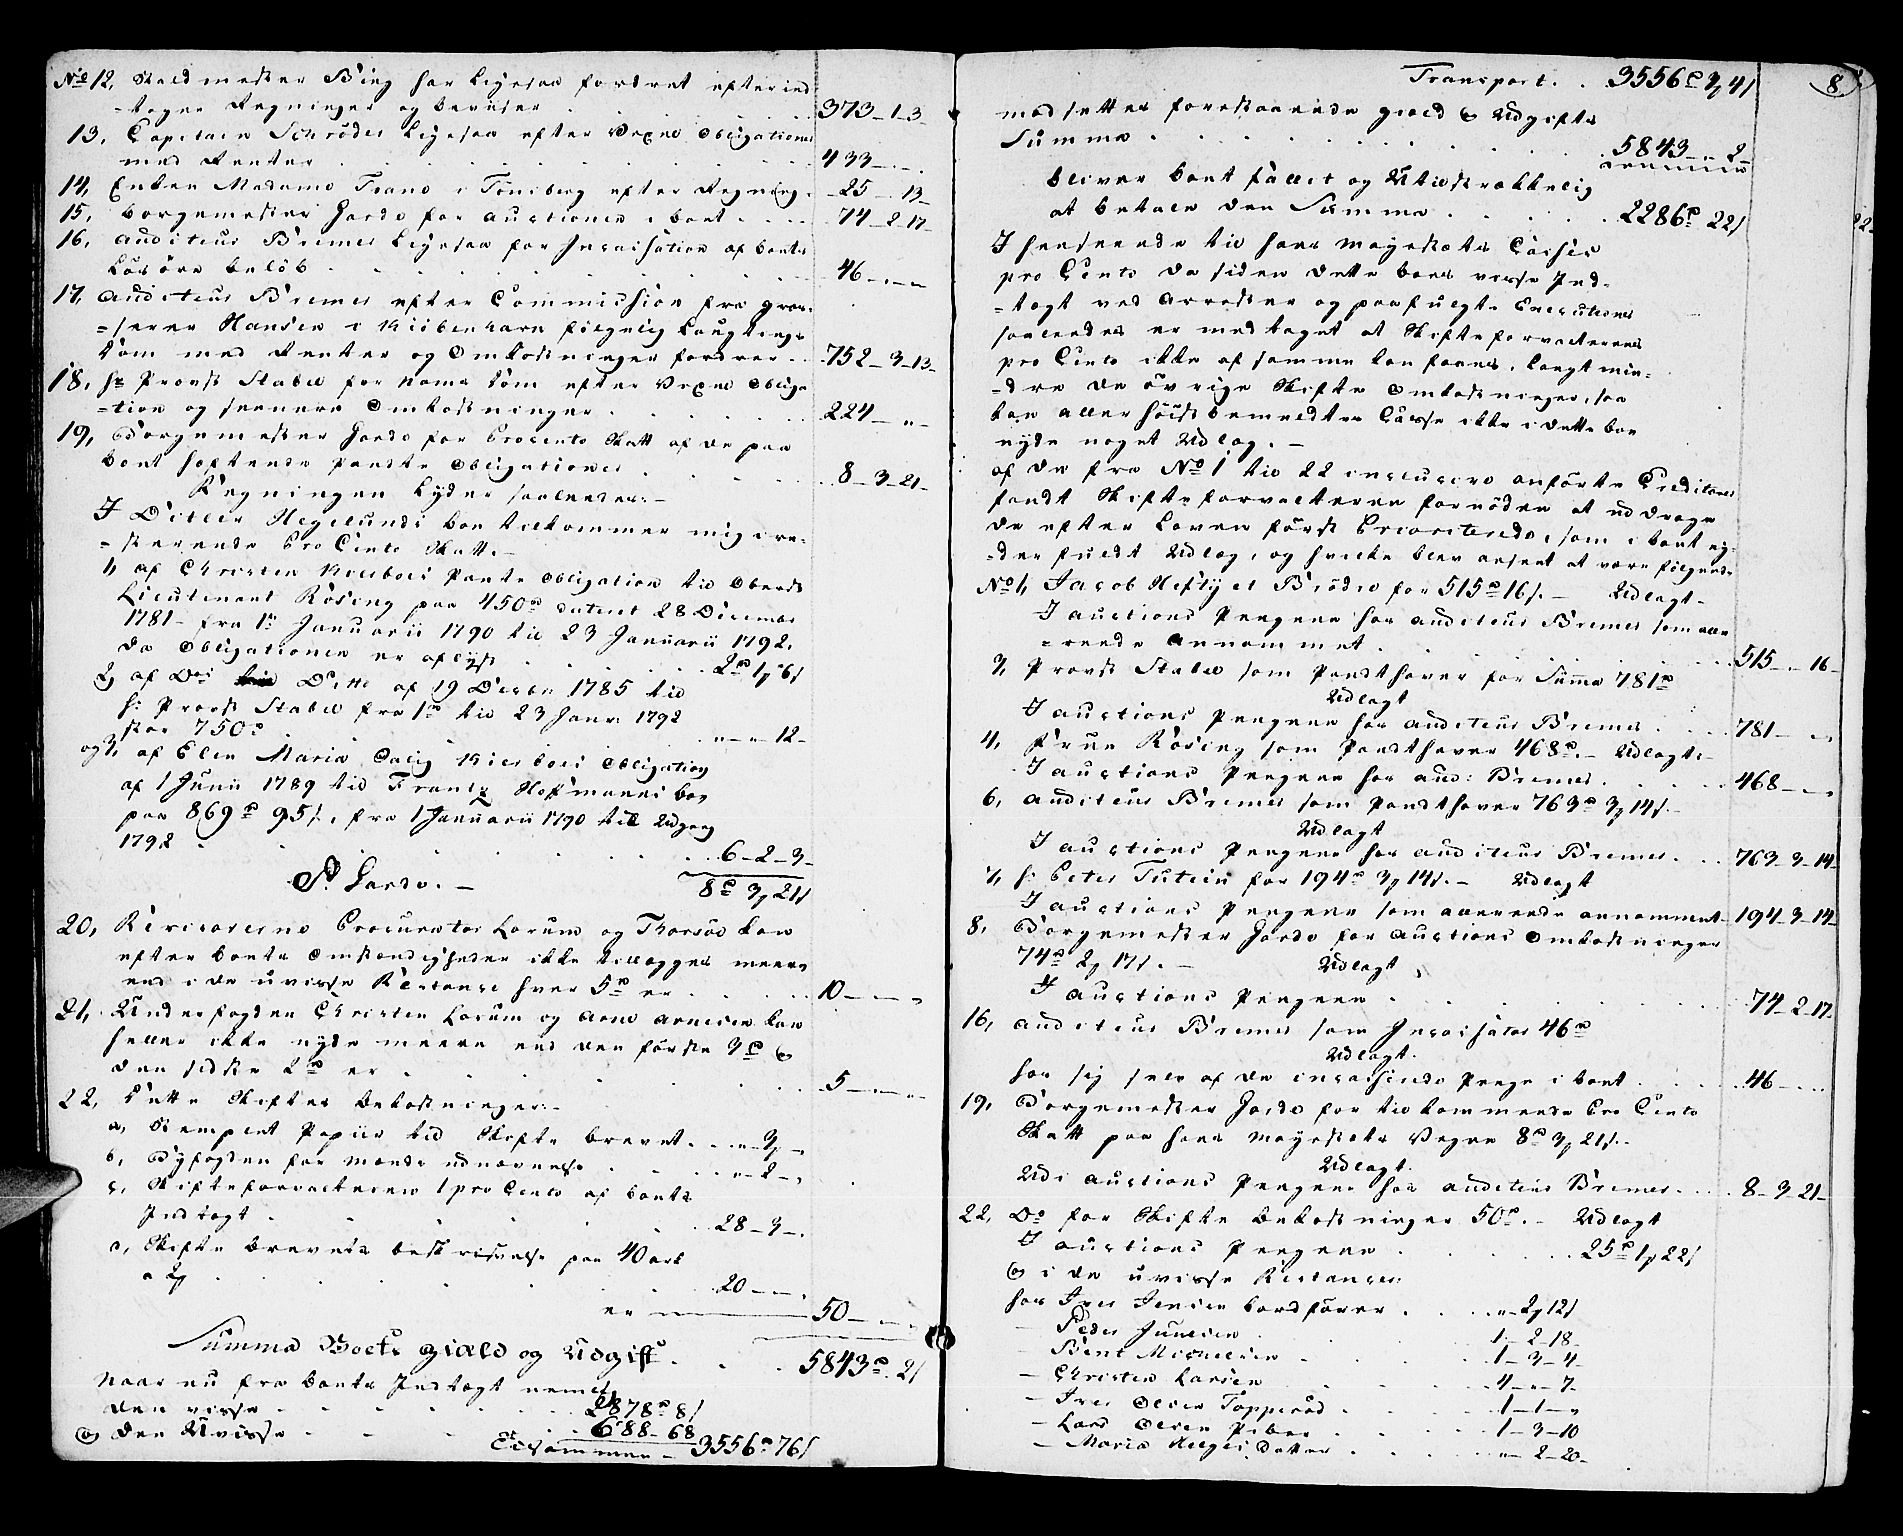 No 12, Stald mester Bing har Ligesaa fordret efter ind
-tagne Regninger og beviser . . . 373-1-3-
13, Capitain Schrøder Ligesaa efter Vexel Obligationer
med Renter . . . 433-„-„
14, Enken Madame Trane i Tønsberg efter Regning. 25-„-13-
15, borgemester Gorde for auctionen i boet . . . 74-2-17-
16, auditeur Bremer Ligesaa for Incassation af boets
Løs øre beløb . . . 46-„-„
17, auditeur Bremer efter Commission fra gros-
-serer Hansen i Kiøbenhavn følgelig Laugtings
dom med Renter og Omkostninger fordrer . . 752-3-13-
18, Hr Provst Stabel for Sama dom efter Vexel Obliga
-tion og seenere Omkostninger . . . 224-„-
19, Borgemester Gorde for Procento Skatt af de paa
boet heftende Pandte Obligationer . . . 8-3-21-
Regningen Lyder saaledes.-
I Ditlev Hegelunds boe tilkommer mig i re-
-sterende Pro Cento Skatt.-
1, af Christen Kilebois Pante Obligation til Oberst
Lieutenant Røsing paa 450rd dateret 28 Decembr
1781 - fra 1te Januarii 1790 til 23 Januarii 1792,
da Obligationen er aflyst . . . 2rd 1, 6s
2, af Do Ditto af 19 Decbr 1785 til
hr Provst Stabel fra 1te til 23 Janr 1792
stor 750rd . . . „-„-12-
og 3, af Elen Maria Salig Kierbois Obligation
af 1 Junii 1789 til Frantz Hofmanns boe
paa 869rd 95s, fra 1 Januarii 1790 til Udgang
1792 . . . 6-2-3-
S. Gorde.- 8rd 3, 21s
20, Revisorerne Procurator Lorum og Thorsøe kan
efter boets Omstændigheder ikke tillegges meere
end i de uvisse Restance hver 5rd er . . . 10-„-„
21, Underfogden Christen Lorum og Arne Arnesen kan
heller ikke nyde meere end den første 3rd &
den sidste 2rd er . . . 5-„-„
22, Dette Skiftes bekostninger.-
a, Stemplet Papiir til Skifte brevet . . „-3,-„
b, Byfogden for mænds udnævnelse . . . „-2-„
c, Skifteforvalterens 1 pro Cento af boets
Indtægt . . . 28-3-„
d, Skifte brevets beskrivelse paa 40 ark
a 2, . . . 20-„-„
er 50-„-„
Summa Boets giæld og Udgift . . . 5843rd-„-2s
Naar nu fra boets Indtægt nemlig
den visse . . . 2878rd 8s
& den Uvisse . . . 688-68
Tilsammen - 3556rd 76s
Transport . . 3556rd 3, 4s
8
modsettes forestaaende giæld & Udgifts
Summa . . . 5843-„-2-
bliver boet fallit og Utilstrækkelig
at betale den Summa . . . 2286rd 22s
I henseende til hans Mayestæts Casses
pro Cento da siden dette boes visse Ind-
-tægt ved Arrester og paafulgte Executioner
saaledes er medtaget at Skifteforvalterens
pro Cento ikke af samme kan faaes, langt min-
-dre de øvrige Skifte Omkostninger, saa
kan allerhøist bemeldte Casse ikke i dette boe
nyde noget Udlæg.-
af de fra No 1 til 22 inclusive anførte Creditorer
fandt Skifteforvalteren fornøden at uddrage
de efter Loven først Prioriterede, som i boet ny-
-der fuldt Udlæg, og hvilke blev anseet at være følgende
No 1, Jacob Hefty et Brødre for 515rd 16s.- Udlagt-
I auctions Pengene hos auditeur Bremer som alle
-reede Annammet . . . 515-„-16-
3, Provst Stabel som Pandthaver for Summa 781rd
Udlagt
I auctions Pengene hos auditeur Bremer . . . 781-„-„
4, Frue Røsing som Pandthaver 468rd.- Udlagt.-
I auctions Pengene hos aud: Bremer . . . 468-„-„
6, auditeur Bremer som Pandthaver 763rd 3, 14s.-
Udlagt
I auctions Pengene hos auditeur Bremer . . . 763-3-14-
7, hr Peter Tutein for 194rd 3, 14s.- Udlagt
I auctions Pengene som allereede annammet- 194-3-14-
8, Borgemester Gorde for auctions Omkostninger
74rd 2, 17s.- Udlagt
I auctions Pengene . . . 74-2-17-
16, auditeur Bremer som Incassator 46rd
Udlagt.
hos sig selv af de incasserede Penge i boet . . . 46-„-„
19, Borgemester Gorde for tilkommende Pro Cento
Skatt paa hans mayestæts Vegne 8rd 3, 21s.-
Udlagt.
Udi auctions Pengene hos auditeur Bremer . . . 8-3-21-
22, Do for Skifte bekostninger 50rd.- Udlagt
I auctions Pengene . . . 25rd 1, 22s
& i de uvisse Restancer.
hos Iver Jensen bordfører . . . „-2, 12s
- Peder Juulsen . . . 1-2-18-
- Bent Michelsen . . . 1-3-4-
- Christen Larsen . . . 4-„-7-
- Iver Olsen Topperød . . . 1-1-„
- Lars Olsen Piber . . . 1-3-10
- Maria Helges Datter . . . „-2-20-